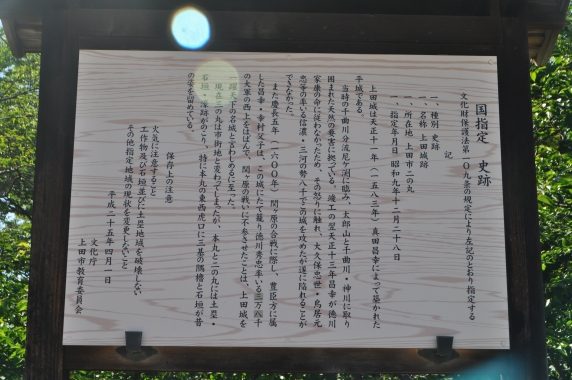 国指定 史跡
文化財保護法第一〇九条の規定により左記のとおり指定する
記
一、種別 史跡
一、名称 上田城跡
一、所在地 上田市二の丸
一、指定年月日 昭和九年十二月二十八日
上田城は天正十一年(一五八三年)真田昌幸によって築かれた
平城である。
当時の千曲川分流尼ヶ淵に臨み、太郎山と千曲川・神川に取り
囲まれた天然の要害に拠っている。竣工の翌天正十三年昌幸が徳川
家康の命に従わなかったため、その怒りに触れ、大久保忠世・鳥居元
忠等の率いる信濃・三河の勢八千でこの城を攻めたが遂に陥れることが
できなかった。
また慶長五年(一六〇〇年)関ヶ原の合戦に際し、豊臣方に属
した昌幸・幸村父子は、この城にたて籠り徳川秀忠率いる三万八千
の大軍の西上をはばんで、関ヶ原の戦いに不参させたことは、上田城を
一躍天下の名城と言わしめるに至った。
現在三の丸は市街地と変わってしまったが、本丸と二の丸には土塁・
石垣・濠跡がのこり、特に本丸の東西虎口に三基の隅櫓と石垣が昔
の姿を留めている。
保存上の注意
火気に注意すること
工作物及び石垣並びに土塁地域を破壊しない
その他指定地域の現状を変更しないこと
平成二十五年四月一日
文化庁
上田市教育委員会